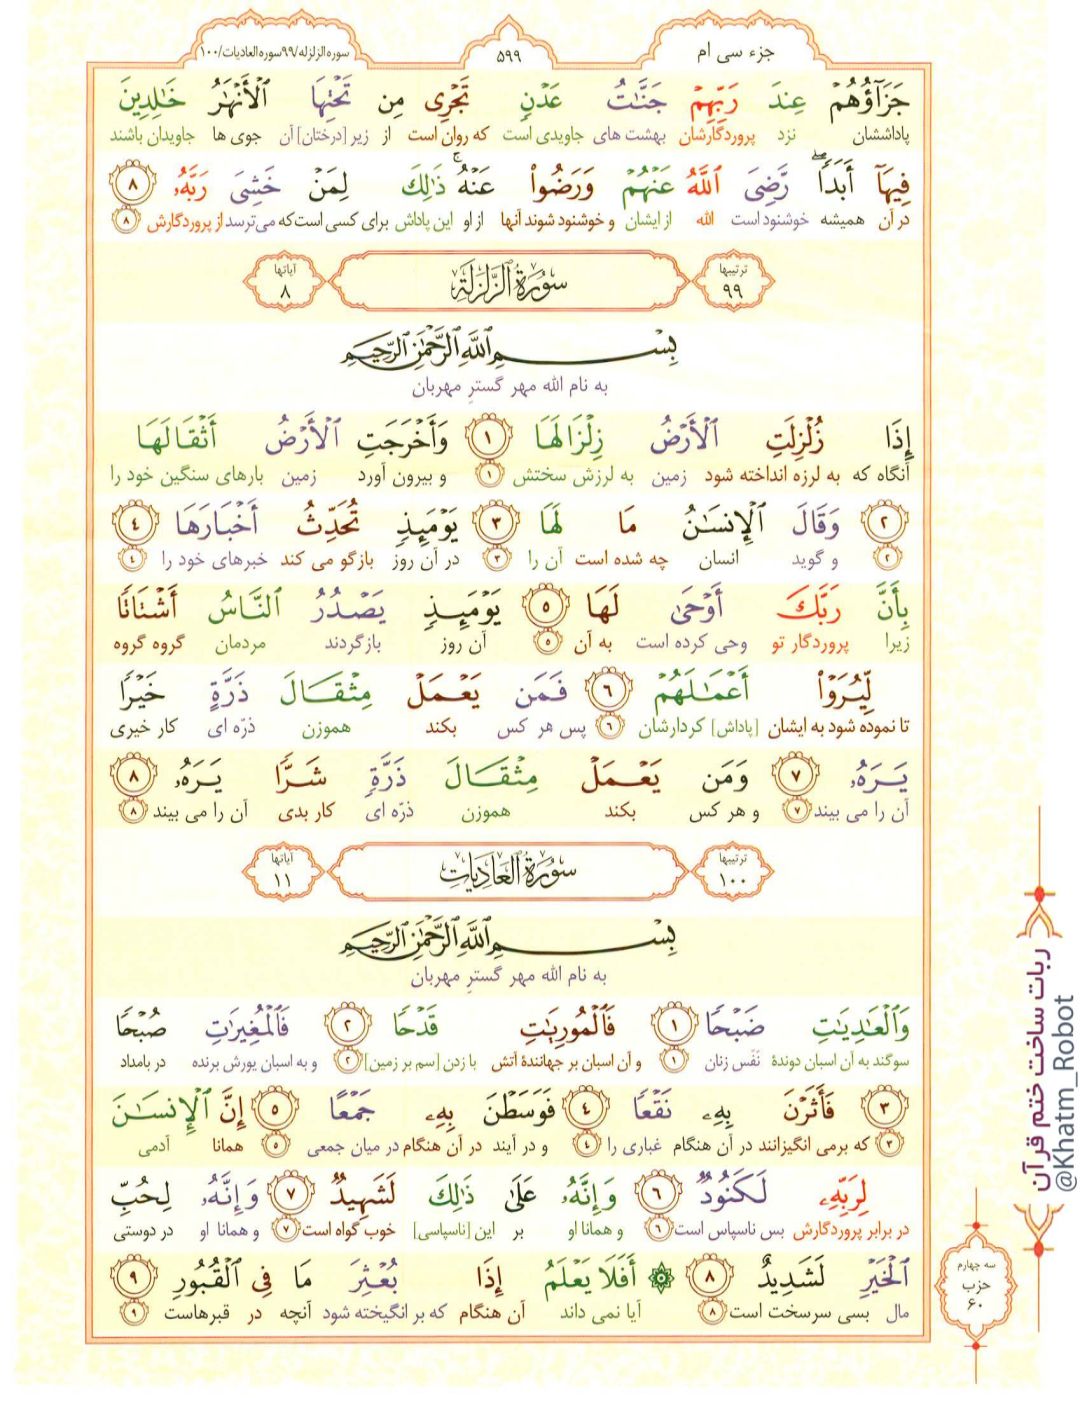 جزء سی ام
۵۹۹
سوره الزلزله/۹۹سوره العادیات/۱۰۰
جَزَآؤُهُمْ عِندَ رَبِّهِمْ جَنَّـٰتُ عَدْنٍ تَجْرِى مِن تَحْتِهَا ٱلْأَنْهَـٰرُ خَـٰلِدِينَ
پاداششان نزد پروردگارشان بهشت های جاویدی است که روان است از زیر [درختان] آن جوی ها جاویدان باشند
فِيهَآ أَبَدًا ۖ رَّضِىَ ٱللَّهُ عَنْهُمْ وَرَضُوا۟ عَنْهُ ۚ ذَٰلِكَ لِمَنْ خَشِىَ رَبَّهُۥ ۸
در آن همیشه خوشنود است الله از ایشان و خوشنود شوند آنها از او این پاداش برای کسی است که می‌ترسد از پروردگارش ۸
ترتیبها ۹۹
سُورَةُ ٱلزَّلْزَلَةِ
آیاتها ۸
بِسْمِ ٱللَّهِ ٱلرَّحْمَـٰنِ ٱلرَّحِيمِ
به نام الله مهر گسترِ مهربان
إِذَا زُلْزِلَتِ ٱلْأَرْضُ زِلْزَالَهَا ۱ وَأَخْرَجَتِ ٱلْأَرْضُ أَثْقَالَهَا
آنگاه که به لرزه انداخته شود زمین به لرزش سختش ۱ و بیرون آورد زمین بارهای سنگین خود را
۲ وَقَالَ ٱلْإِنسَـٰنُ مَا لَهَا ۳ يَوْمَئِذٍ تُحَدِّثُ أَخْبَارَهَا ۴
۲ و گوید انسان چه شده است آن را ۳ در آن روز بازگو می کند خبرهای خود را ۴
بِأَنَّ رَبَّكَ أَوْحَىٰ لَهَا ۵ يَوْمَئِذٍ يَصْدُرُ ٱلنَّاسُ أَشْتَاتًا
زیرا پروردگار تو وحی کرده است به آن ۵ آن روز بازگردند مردمان گروه گروه
لِّيُرَوْا۟ أَعْمَـٰلَهُمْ ۶ فَمَن يَعْمَلْ مِثْقَالَ ذَرَّةٍ خَيْرًا
تا نموده شود به ایشان [پاداش] کردارشان ۶ پس هر کس بکند هموزن ذرّه ای کار خیری
يَرَهُۥ ۷ وَمَن يَعْمَلْ مِثْقَالَ ذَرَّةٍ شَرًّا يَرَهُۥ ۸
آن را می بیند ۷ و هر کس بکند هموزن ذرّه ای کار بدی آن را می بیند ۸
ترتیبها ۱۰۰
سُورَةُ ٱلْعَادِيَاتِ
آیاتها ۱۱
بِسْمِ ٱللَّهِ ٱلرَّحْمَـٰنِ ٱلرَّحِيمِ
به نام الله مهر گسترِ مهربان
وَٱلْعَـٰدِيَـٰتِ ضَبْحًا ۱ فَٱلْمُورِيَـٰتِ قَدْحًا ۲ فَٱلْمُغِيرَٰتِ صُبْحًا
سوگند به آن اسبان دوندهٔ نَفَس زنان ۱ و آن اسبان بر جهانندهٔ آتش با زدن [سم بر زمین] ۲ و به اسبان یورش برنده در بامداد
۳ فَأَثَرْنَ بِهِۦ نَقْعًا ۴ فَوَسَطْنَ بِهِۦ جَمْعًا ۵ إِنَّ ٱلْإِنسَـٰنَ
۳ که برمی انگیزانند در آن هنگام غباری را ۴ و در آیند در آن هنگام در میان جمعی ۵ همانا آدمی
لِرَبِّهِۦ لَكَنُودٌ ۶ وَإِنَّهُۥ عَلَىٰ ذَٰلِكَ لَشَهِيدٌ ۷ وَإِنَّهُۥ لِحُبِّ
در برابر پروردگارش بس ناسپاس است ۶ و همانا او بر این [ناسپاسی] خوب گواه است ۷ و همانا او در دوستی
ٱلْخَيْرِ لَشَدِيدٌ ۸ ۞ أَفَلَا يَعْلَمُ إِذَا بُعْثِرَ مَا فِى ٱلْقُبُورِ ۹
مال بسی سرسخت است ۸ آیا نمی داند آن هنگام که بر انگیخته شود آنچه در قبرهاست ۹
سه چهارم
حزب
۶۰
ربات ساخت ختم قرآن
@Khatm_Robot